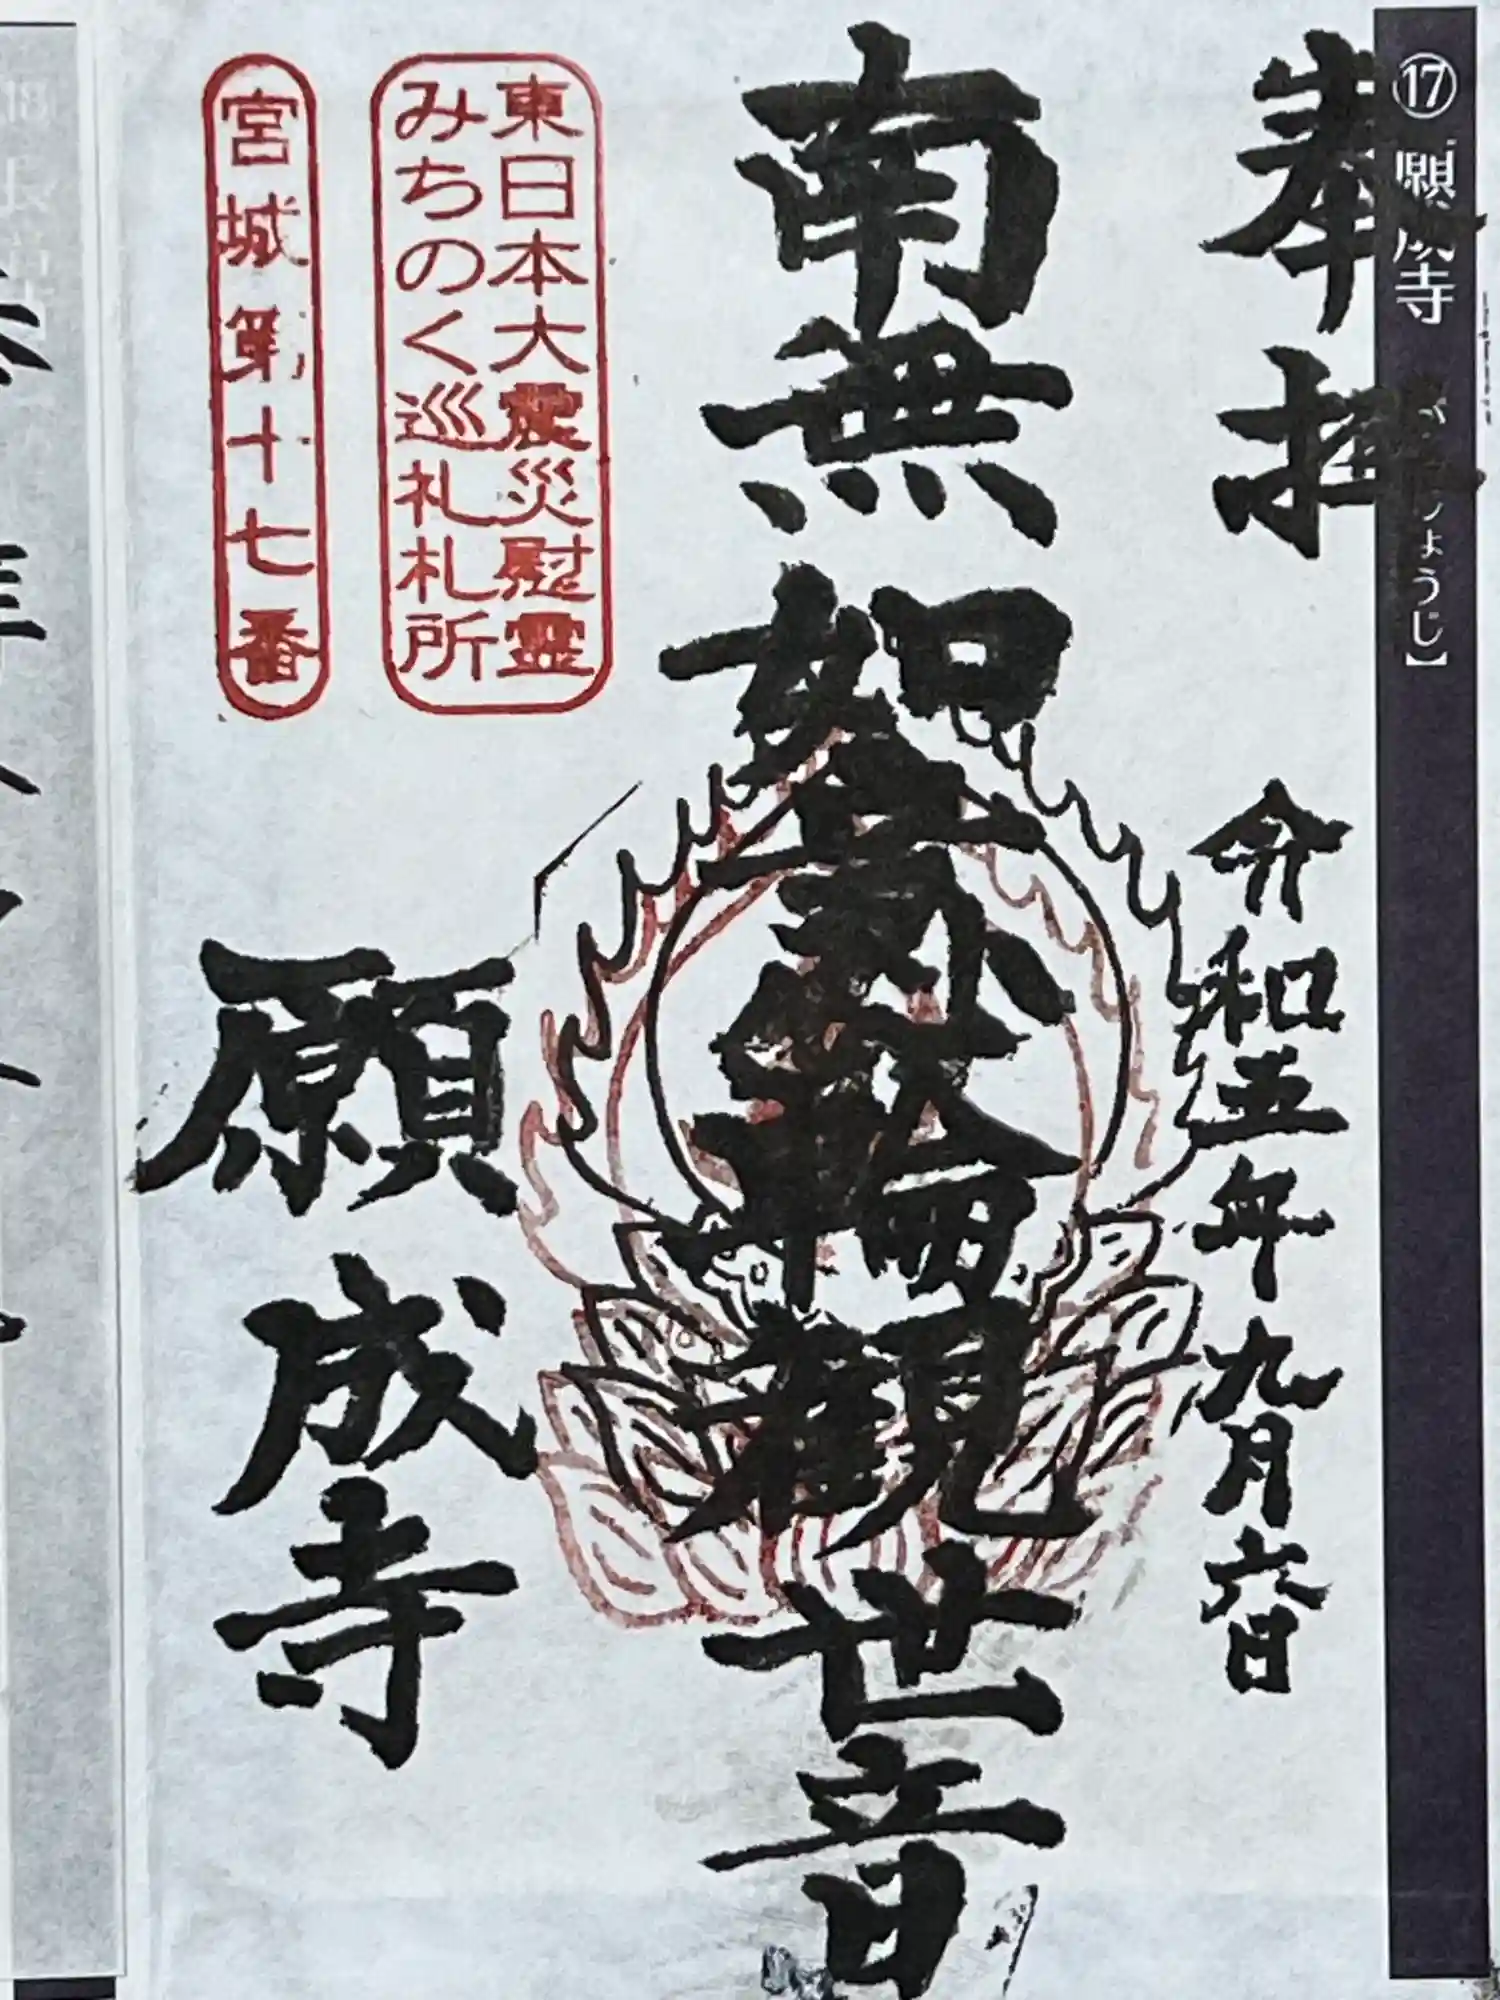 ⑰ 願成寺
奉拝
令和五年九月六日
南無如意輪観世音
東日本大震災慰霊
みちのく巡礼札所
宮城第十七番
願成寺